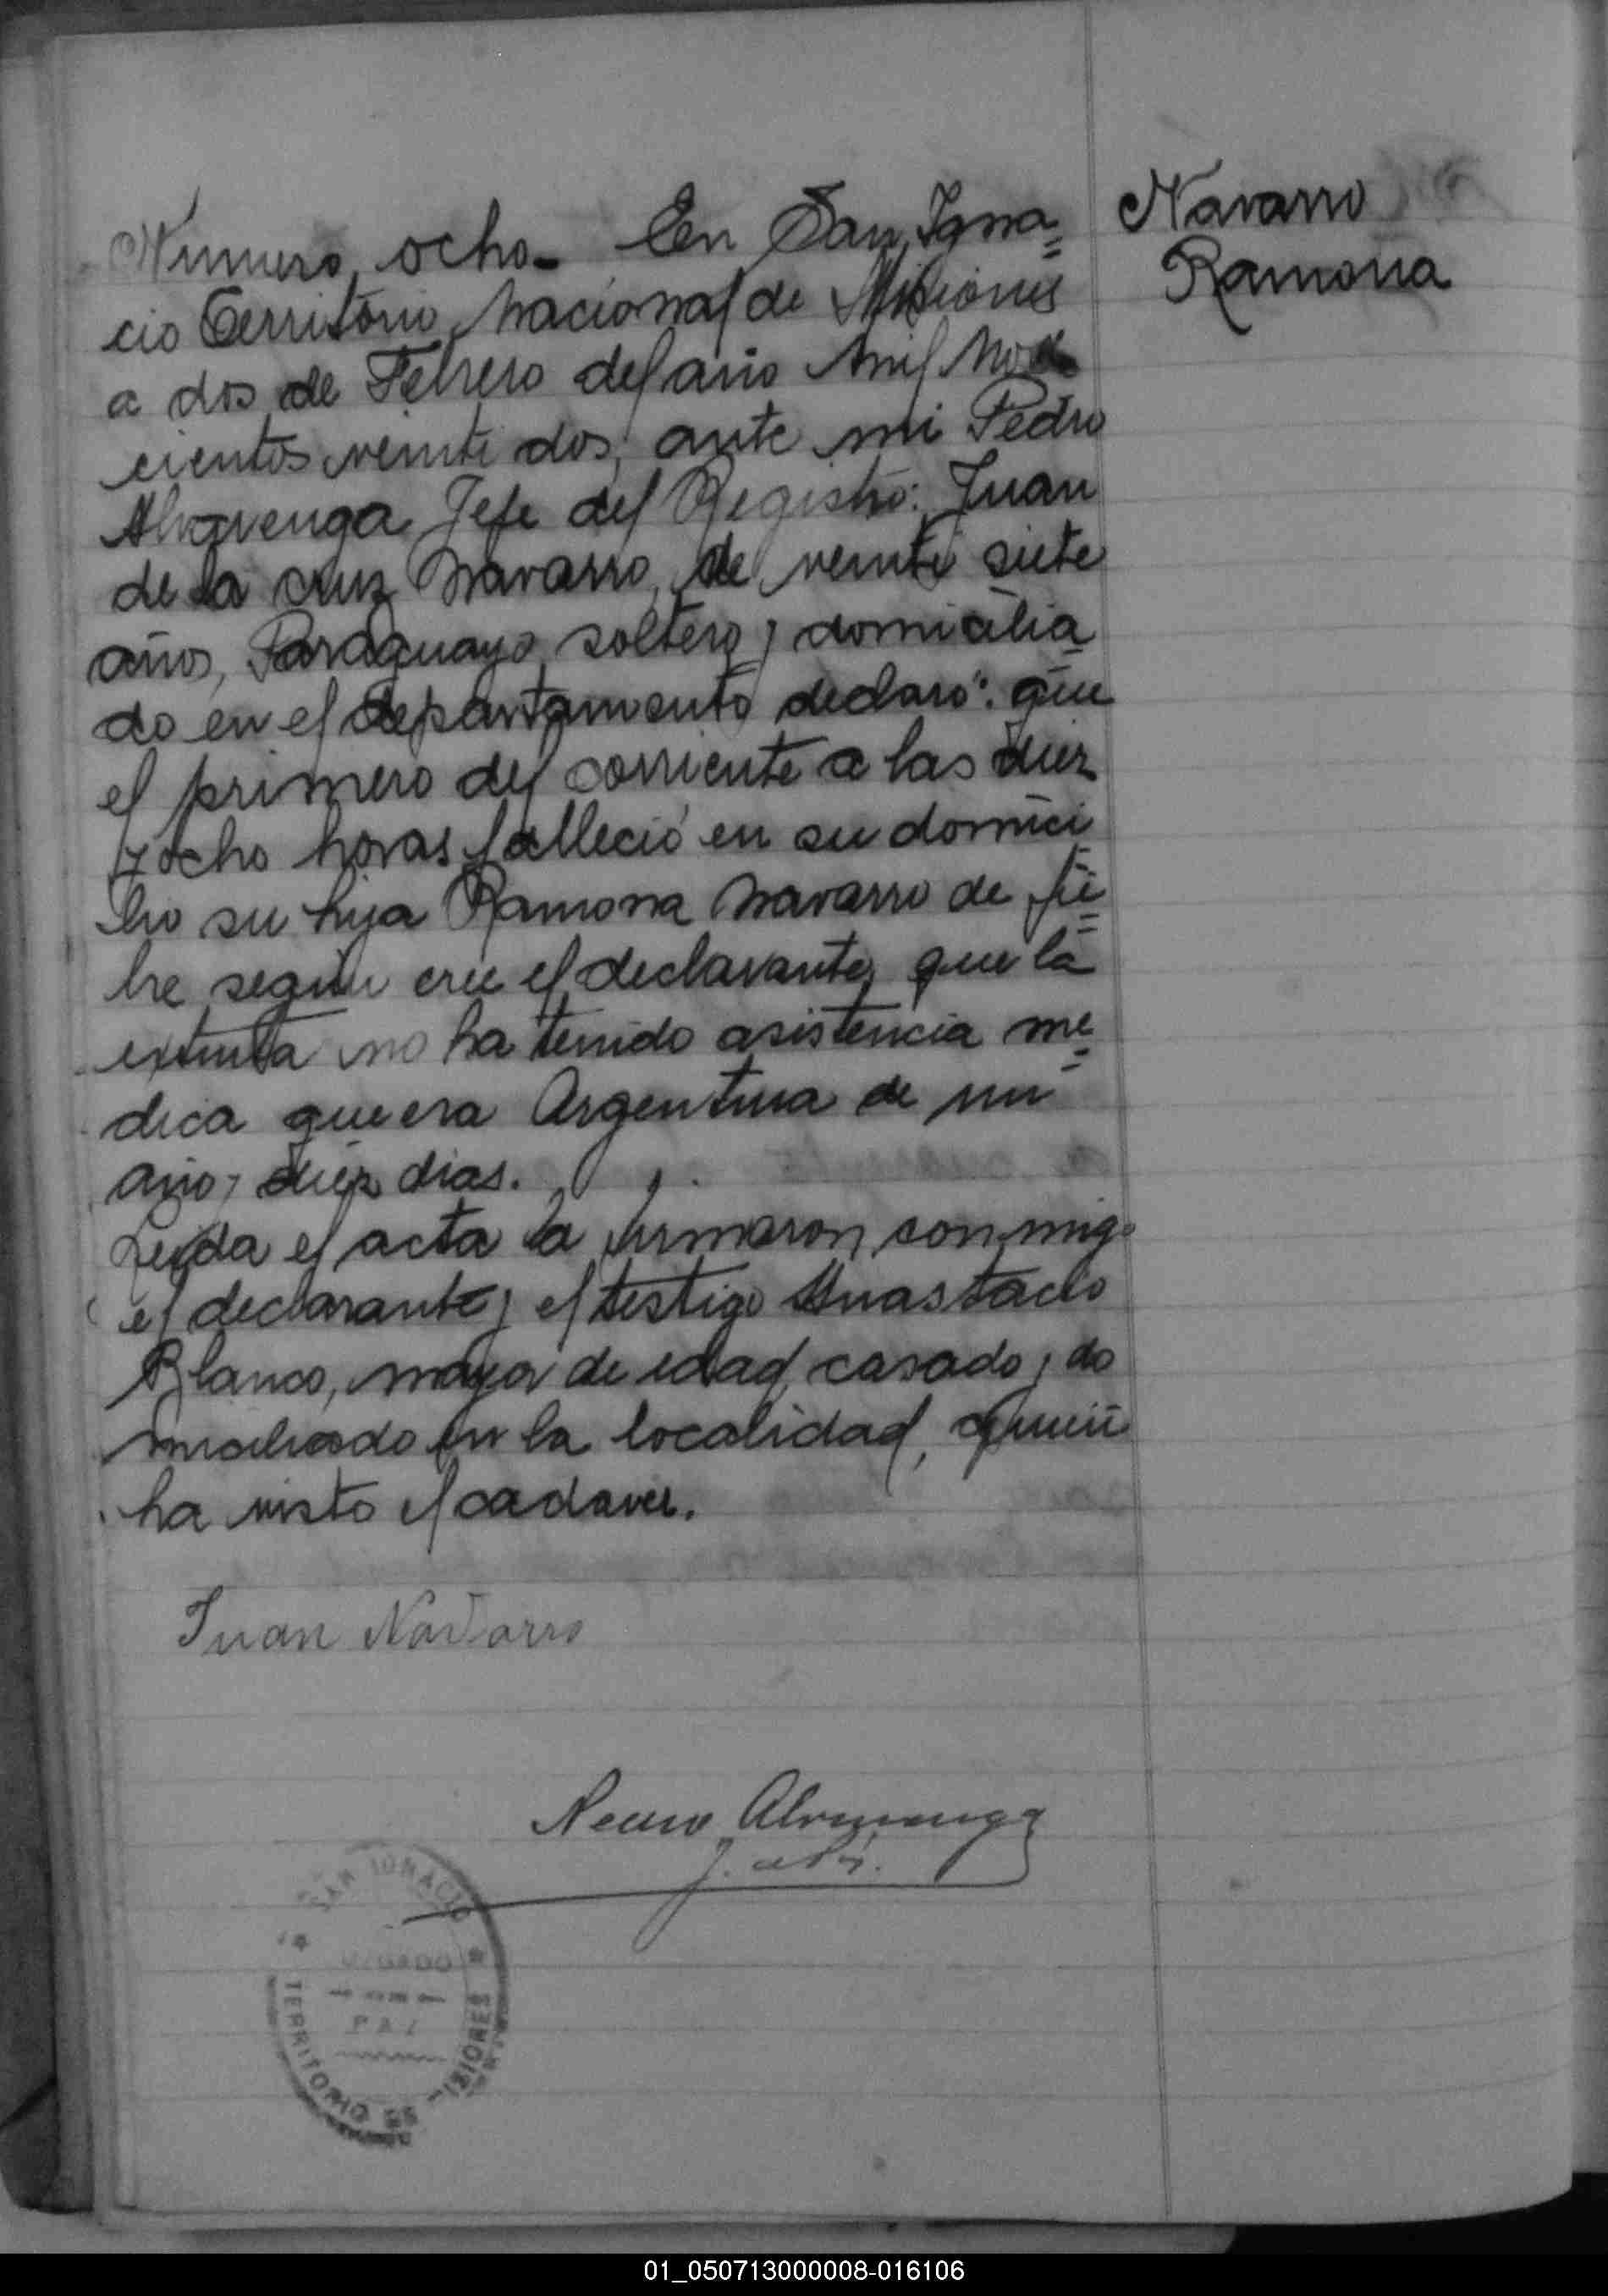 Navarro
Ramona
Numero ocho - En San Igna=
cio Territorio Nacional de Misiones
a dos de Febrero del año mil nove
cientos veinte dos, ante mi Pedro
Alvarenga Jefe del Registro: Juan
de la cruz Navarro, de veinte siete
años, Paraguayo, soltero y domicilia=
do en el departamento declaró: que
el primero del corriente a las diez
y ocho horas falleció en su domici
lio su hija Ramona Navarro de fie=
bre segun cree el declarante, que la
extinta no ha tenido asistencia me=
dica que era Argentina de un
año y diez dias.
Leida el acta la firmaron conmigo
el declarante y el testigo Anastacio
Blanco, mayor de edad, casado y do
miciliado en la localidad, quien
ha visto el cadaver.
Juan Navarro
Alvarenga
SAN IGNACIO
JUZGADO
DE
PAZ
TERRITORIO DE MISIONES
01_050713000008-016106